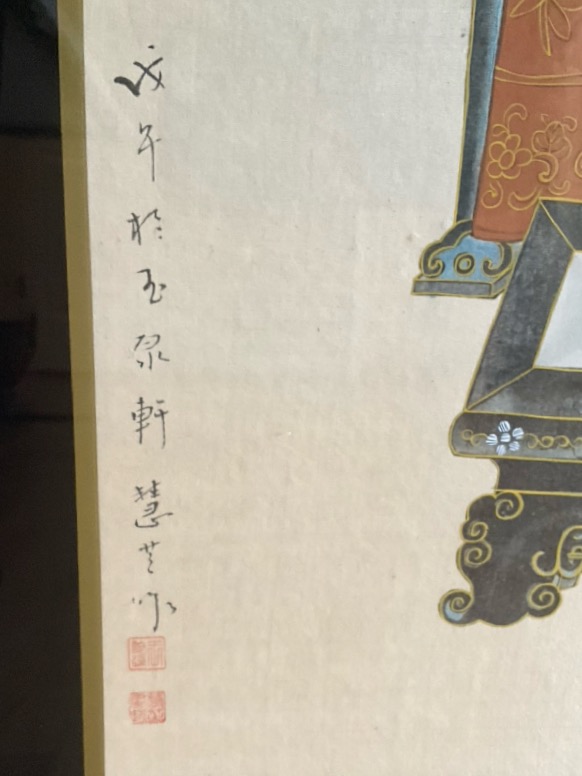 戊午於玉泉軒慧芝作